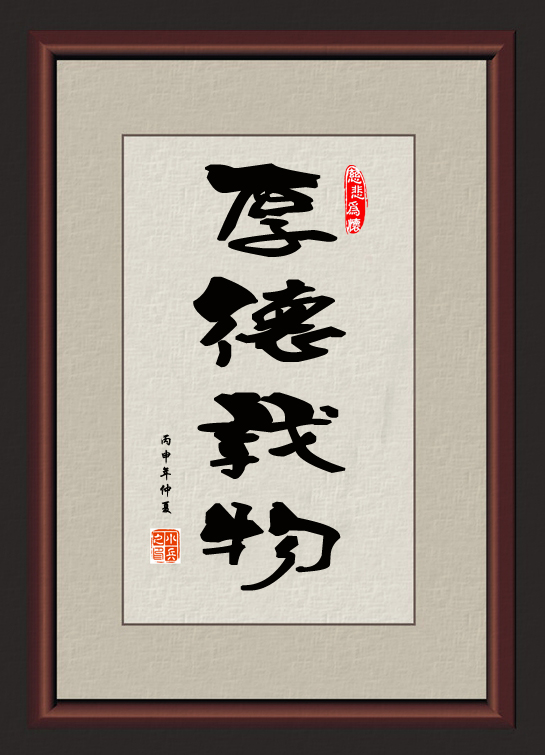 慈悲為懷
厚德载物
丙申年仲夏
小兵之印